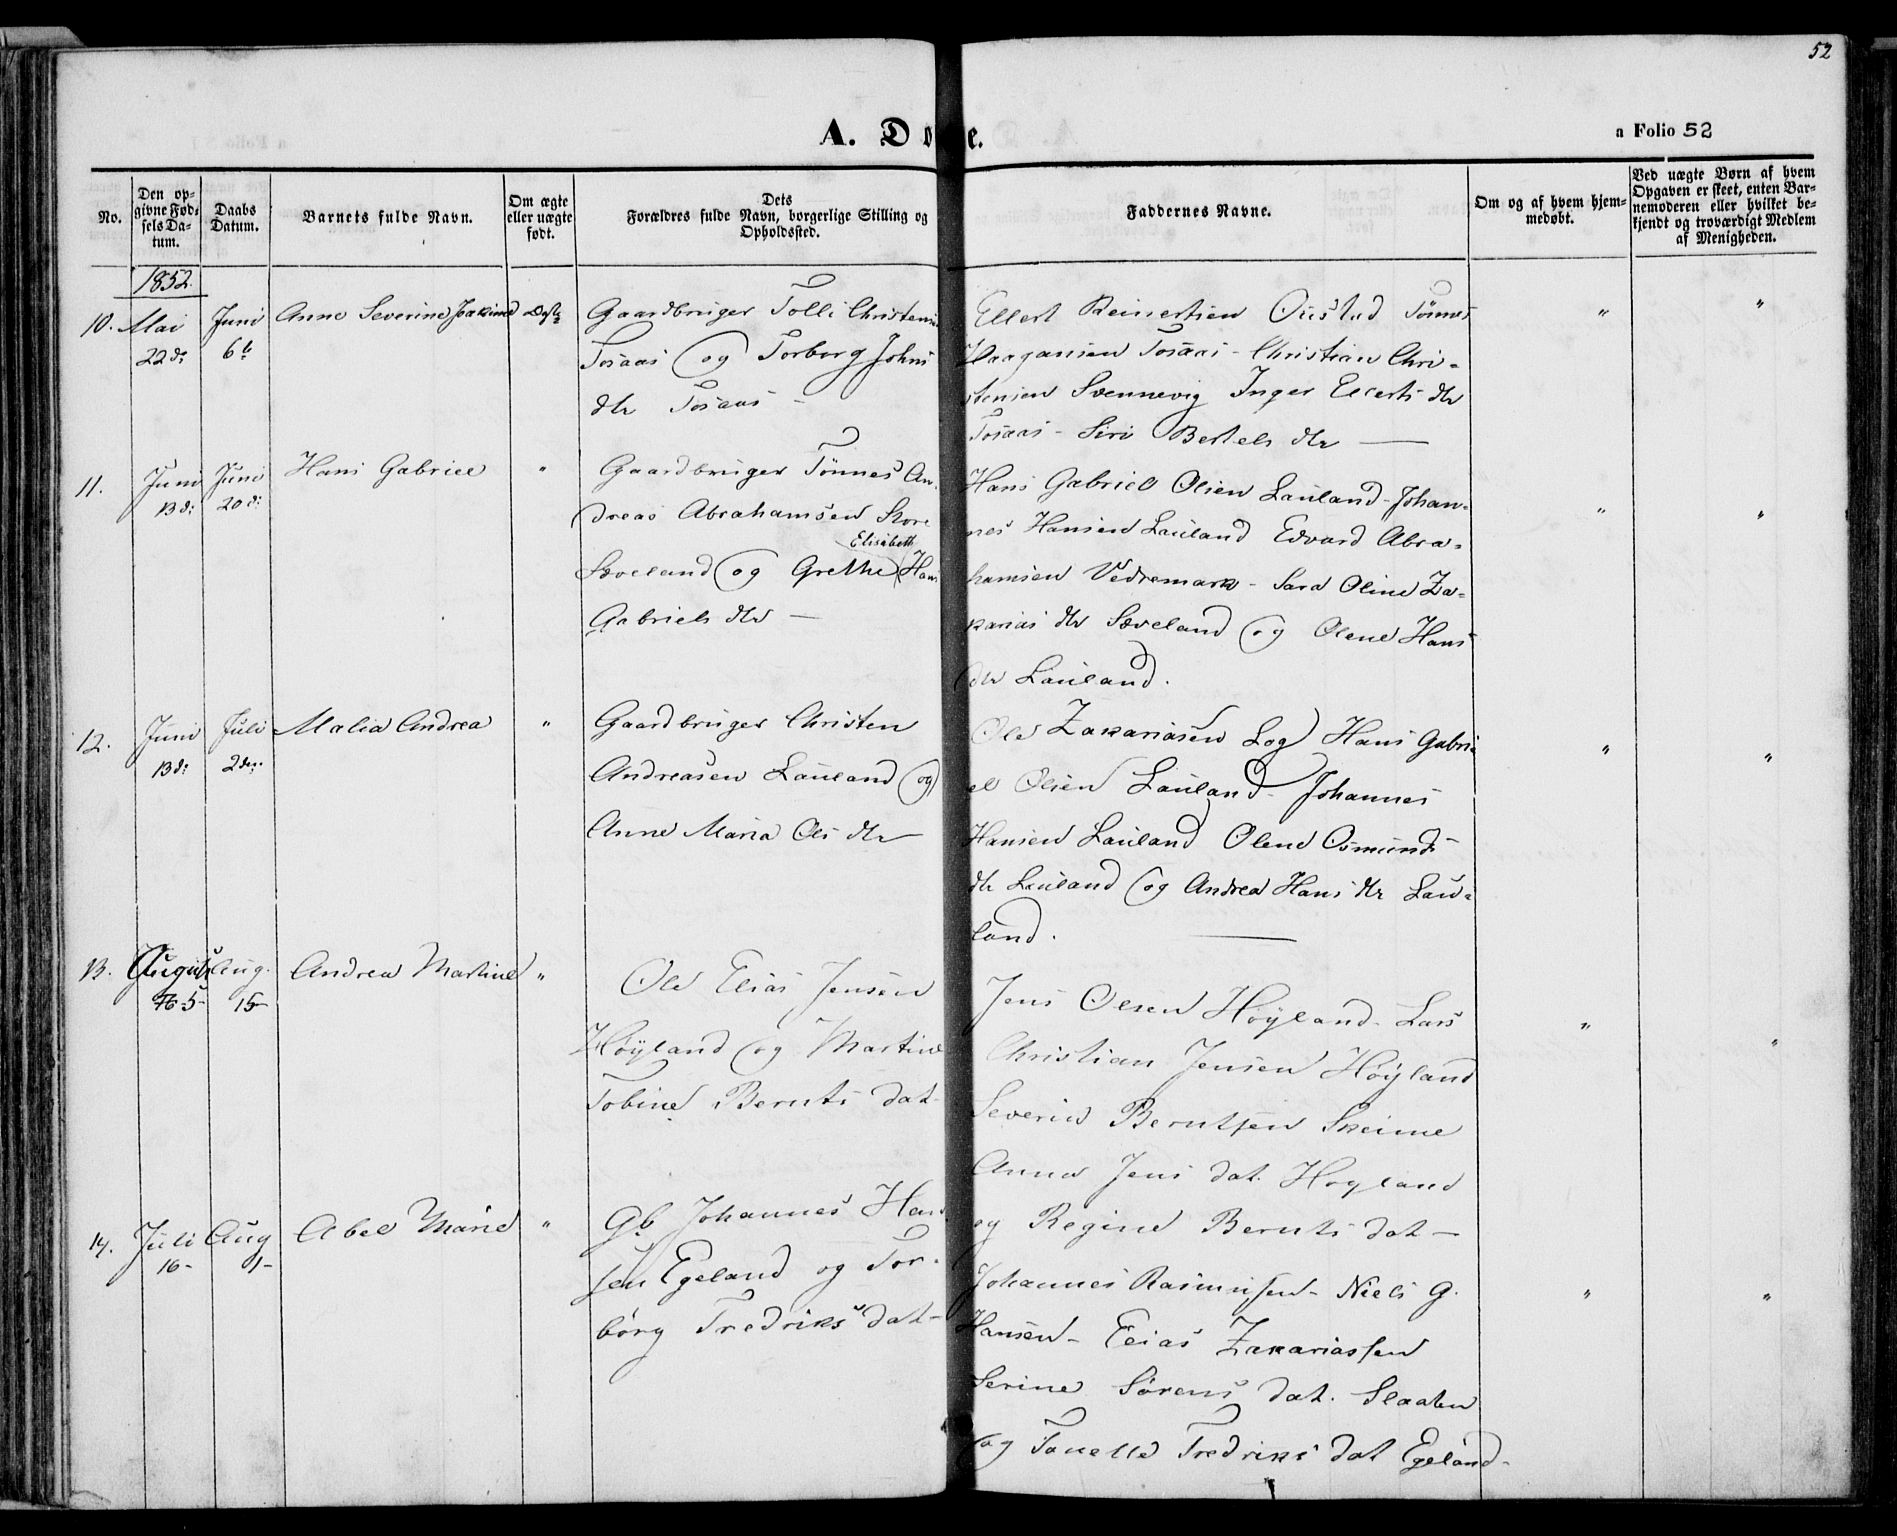 52
A. Døbte.
a Folio 52
No.
Den op-
givne Fød-
sels Da-
tum.
Daabs
Datum.
Barnets fulde Navn.
Om ægte
eller uægte
født.
Dets
Forældres fulde Navn, borgerlige Stilling og
Opholdssted.
Faddernes Navne.
Om og af hvem hjem-
medøbt.
Ved uægte Børn af hvem
Opgaven er skeet, enten Bar-
nemoderen eller hvilket be-
kjendt og troværdigt Medlem
af Menigheden.
1852.
10. Mai
22de
Juni
6te
Anne Severine Joakime
Ægte
Gaardbruger Tolli Christens
Tosaas og Torborg Johns
dtr Tosaas -
Ellert Reinertsen Tønnes
Haagansen Tosaas - Christian Chri-
stensen Svennevig Inger Ellerts dtr
Tosaas - Siri Bertels dtr —
" "
11. Juni
13de
Juni
20de
Hans Gabriel
"
Gaardbruger Tønnes An-
dreas Abrahamsen Store
Elisabeth
Sæveland og Grethe Hans
Gabriels dtr —
Hans Gabriel Olsen Lauland - Johan-
nes Hansen Lauland Edvard Abra-
hamsen Vedremark - Sara Oline Za-
karias dtr Sæveland og Olene Hans
dtr Lauland.
" "
12. Juni
13de
Juli
2den
Malia Andrea
"
Gaardbruger Christen
Andreasen Lauland og
Anne Maria Ols dtr —
Ole Zakariasen Log Hans Gabri-
el Olsen Lauland - Johannes
Hansen Lauland Olene Osmunds
dtr Lauland og Andrea Hans dtr Lau-
land. —
" "
13. August
5-
Aug.
15-
Andrea Martine
"
Ole Elias Jensen
Høyland og Martine
Tobine Bernts dat-
Jens Olsen Høyland - Lars
Christian Jensen Høyland
Severin Berntsen Skeime
Anna Jens dat. Høyland
og Regine Bernts dat —
" "
14. Juli
16-
Aug
1-
Abel Marie
"
Gb. Johannes Han
sen Egeland og Tor-
børg Fredriks dat-
Johannes Rasmussen - Niels G.
Hansen - Elias Zakariassen
Serine Sørens dat. Slaaten
og Tonette Fredriks dat Egeland-
" "